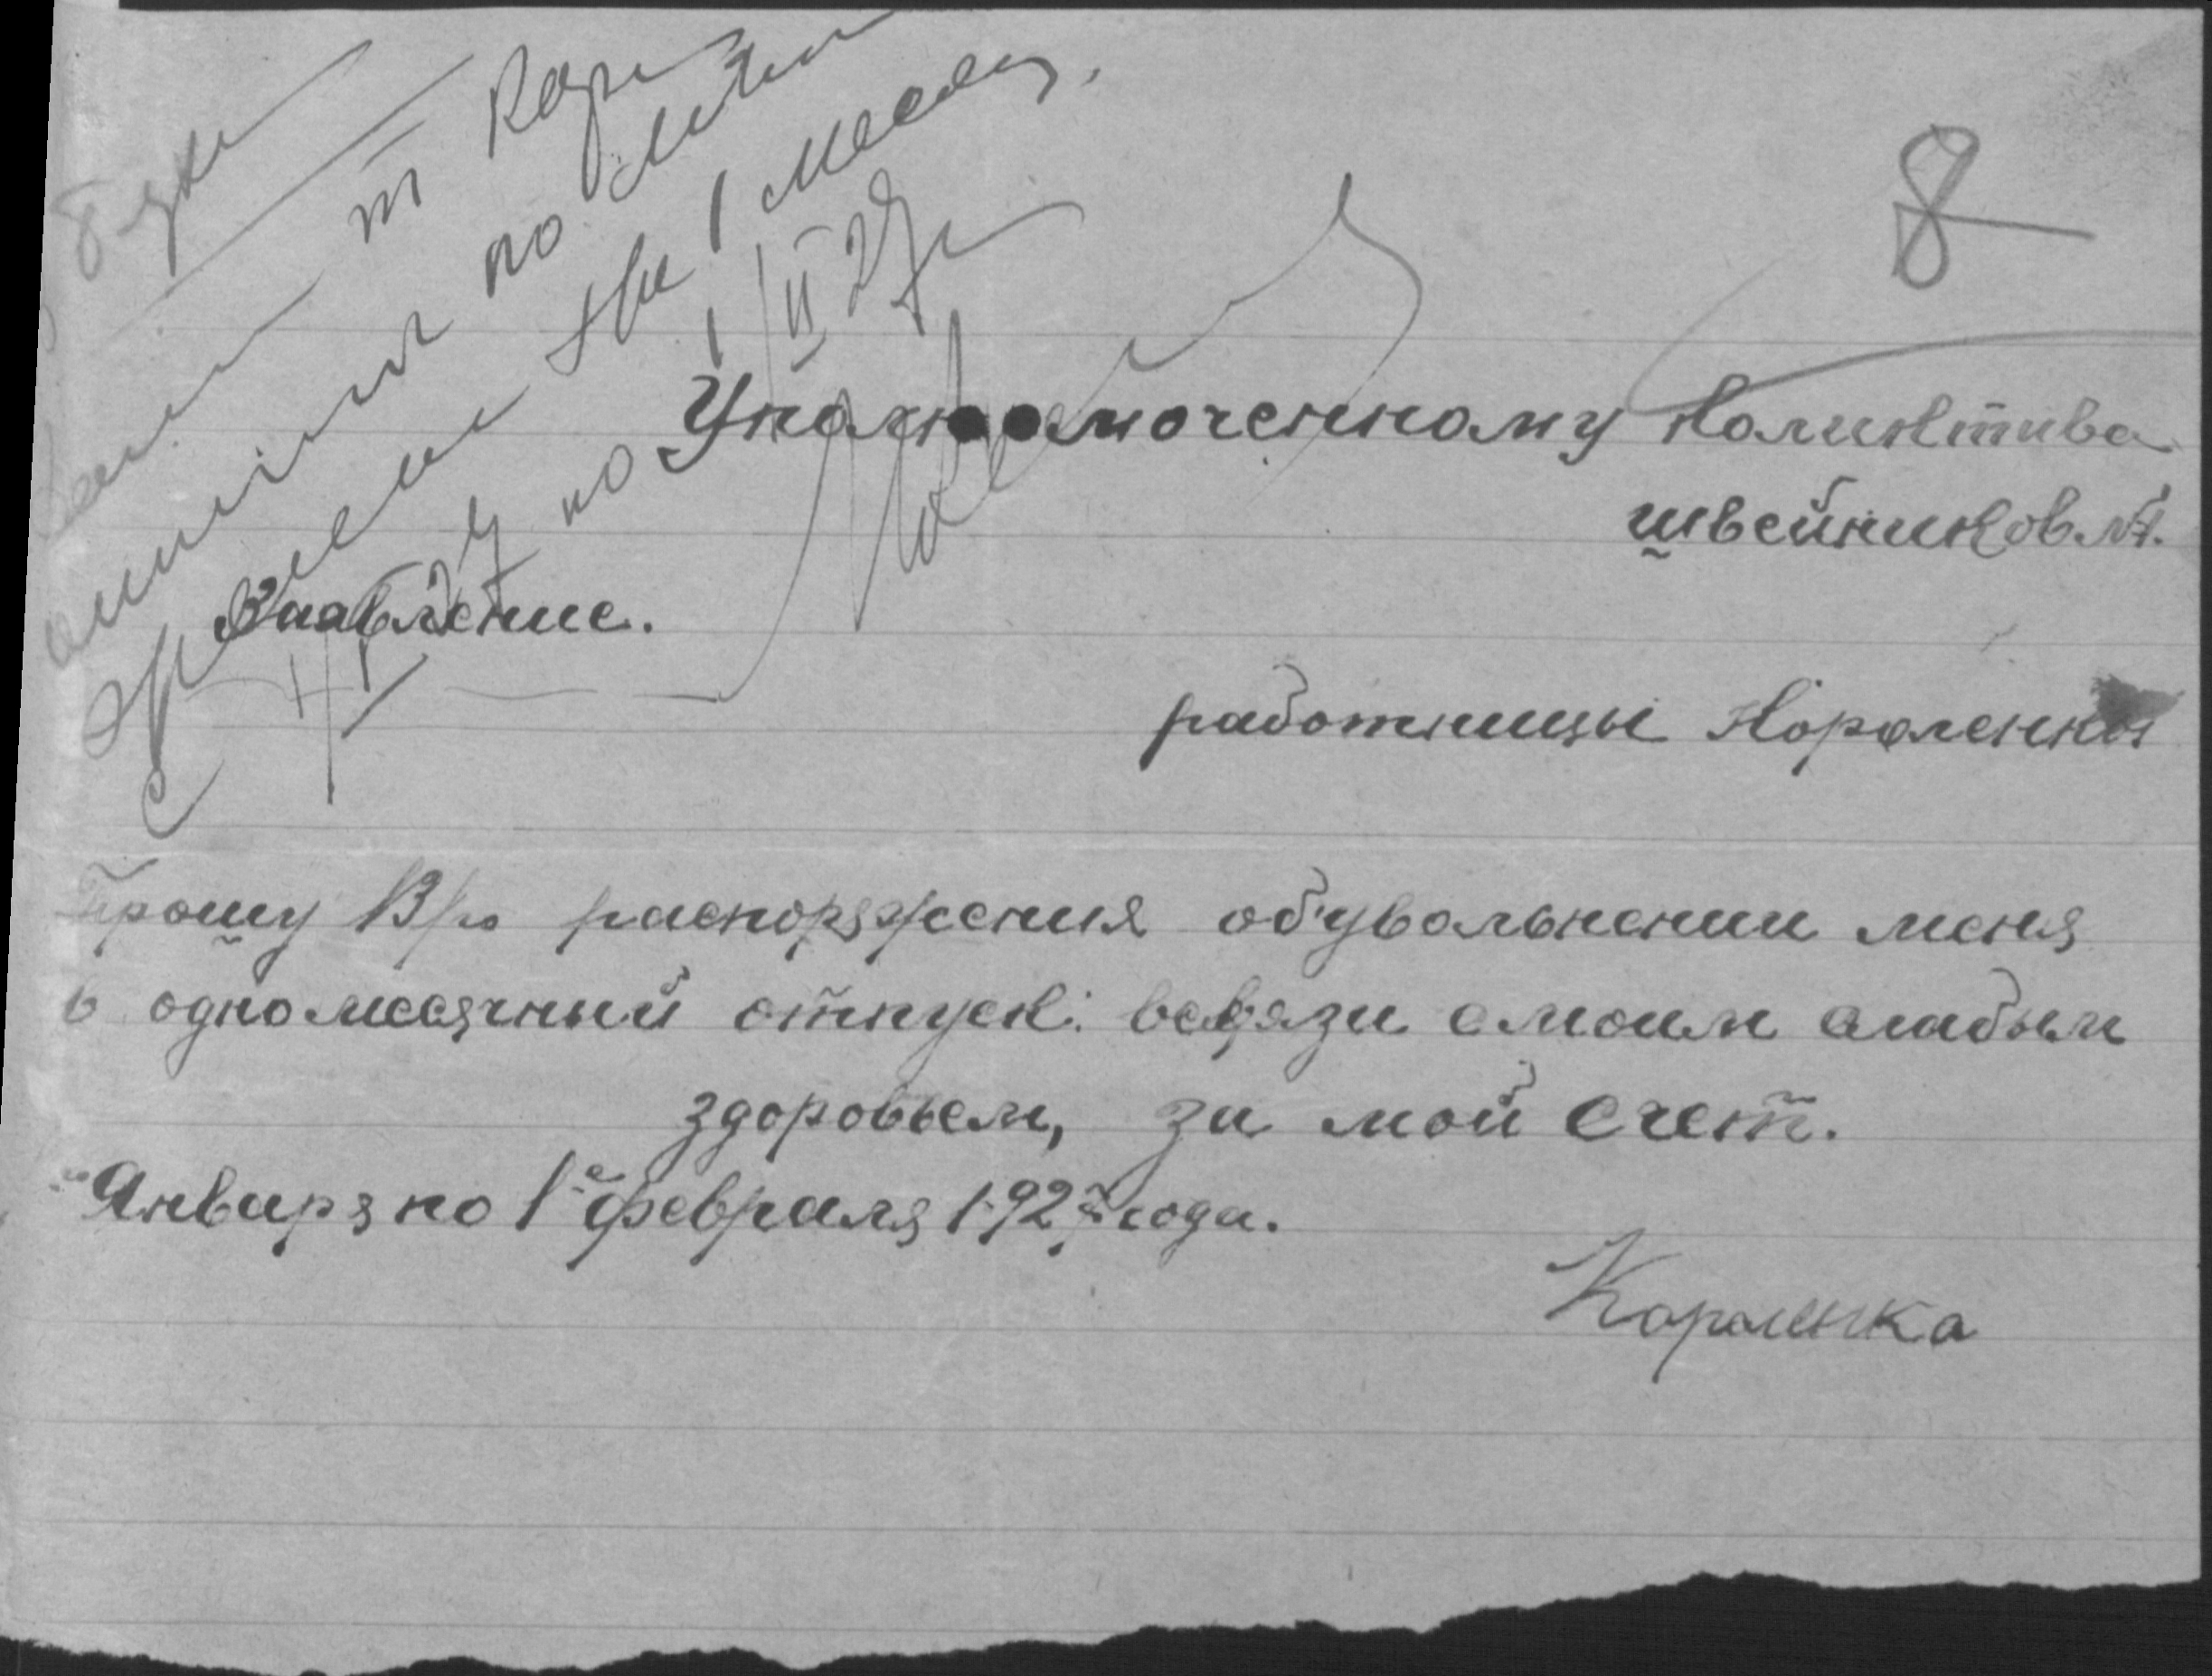 8
т Кор
по личн
на 1 месяц.
II 27 г
по
Уполномоченному Коликтива
швейников №1.
Заявление.
работницы Короленко
Прошу В/го распоряжения об'увольнении меня
в одномесячный отпуск: всвязи смоим слабым
здоровьем, за мой счет.
Января по 1е февраля 1927 года.
Короленка